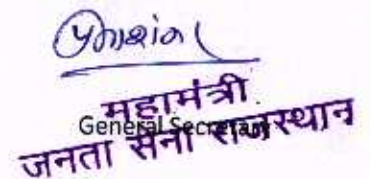 महामंत्री
General Secretary
जनता सेना राजस्थान